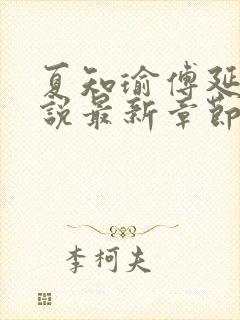 夏知瑜傅延
說最新章節
李柯夫